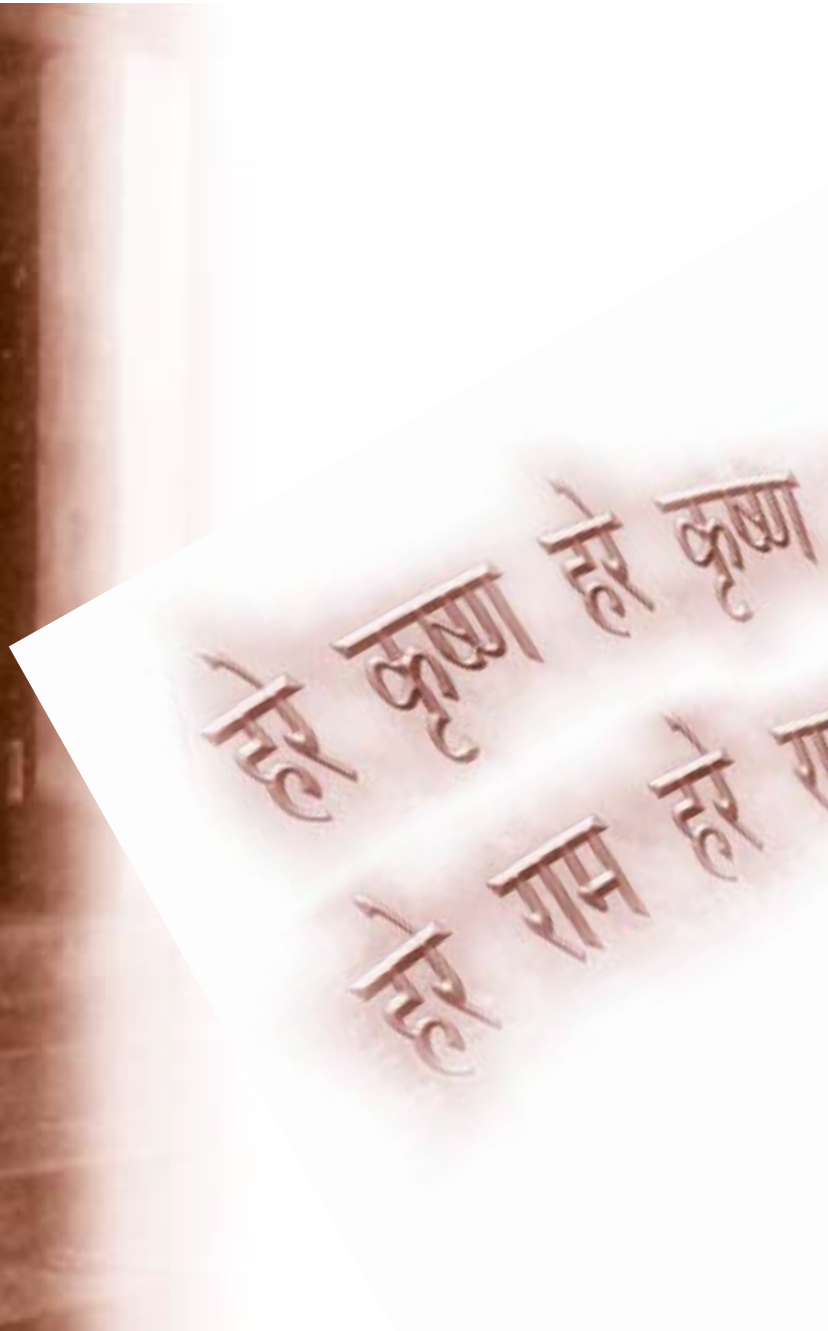 हरे कृष्ण हरे कृष्ण
हरे राम हरे